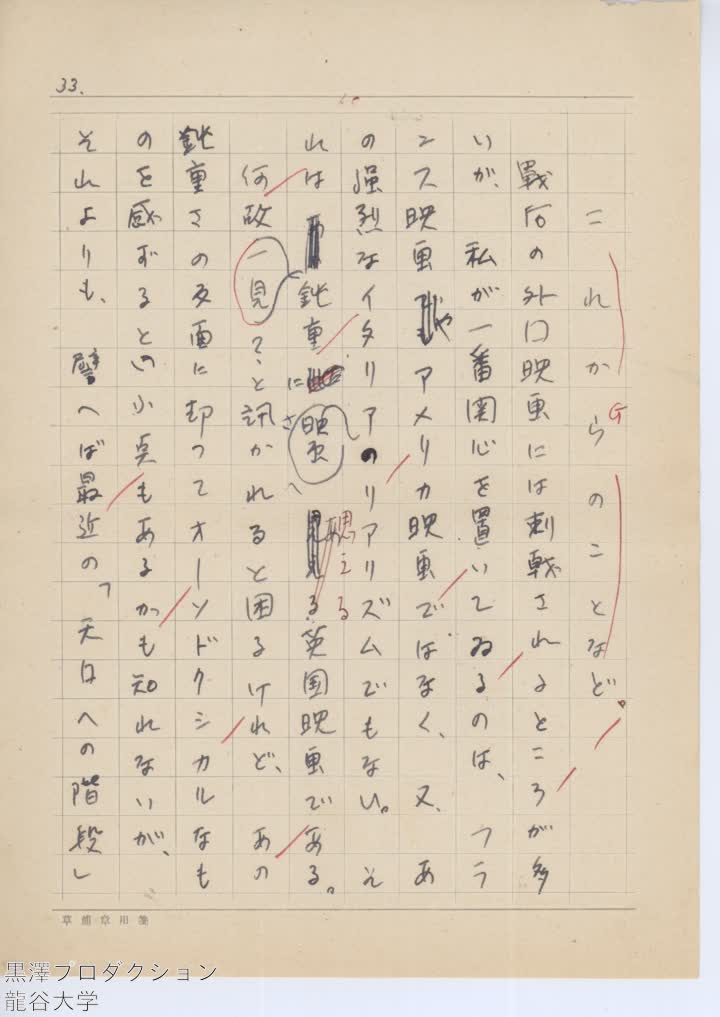 33.
これからのことなど。
戦后の外口映画には刺戟されるところが多
いが、私が一番関心を置いてゐるのは、フラ
ンス映画やアメリカ映画ではなく、又、あ
の強烈なイタリアのリアリズムでもない。そ
れは一見鈍重にさへ思える英国映画である。
何故?と訊かれると困るけれど、あの
鈍重さの反面に却つてオーソドクシカルなも
のを感ずるといふ点もあるかも知れないが、
それよりも、譬へば最近の「天国への階段し
草熊章用箋
黒澤プロダクション
龍谷大学